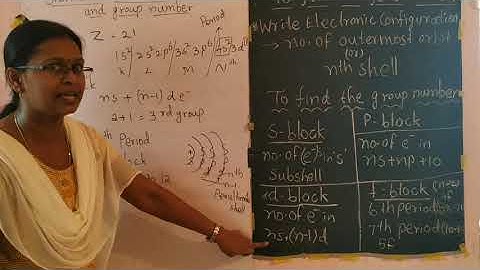 and group number
Period
Z = 21
1s² 2s² 2p⁶ 3s² 3p⁶ 4s² 3d¹
K L M N
ns + (n-1) d e⁻
2+1 = 3rd group
Period
nth
n-1
Penultimate
shell
*Write Electronic Configuration
→ no. of outermost orbit
(or)
nth shell
To find the group number
S-block
no. of (e⁻) in 's'
Subshell
P-block
no. of e⁻ in
ns+np+10
d-block
no. of e⁻ in
ns+(n-1)d
f-block
6th period
7th period
5f